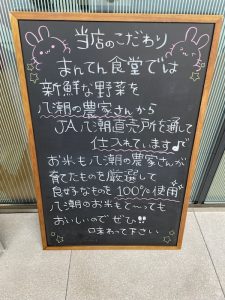 当店のこだわり
まんてん食堂では
新鮮な野菜を
八潮の農家さんから
JA八潮直売所を通して
仕入れています♪
お米も八潮の農家さんが
育てたものを厳選して
良好なものを100%使用
八潮のお米もて〜っても
おいしいのでぜひ!!
味わって下さい